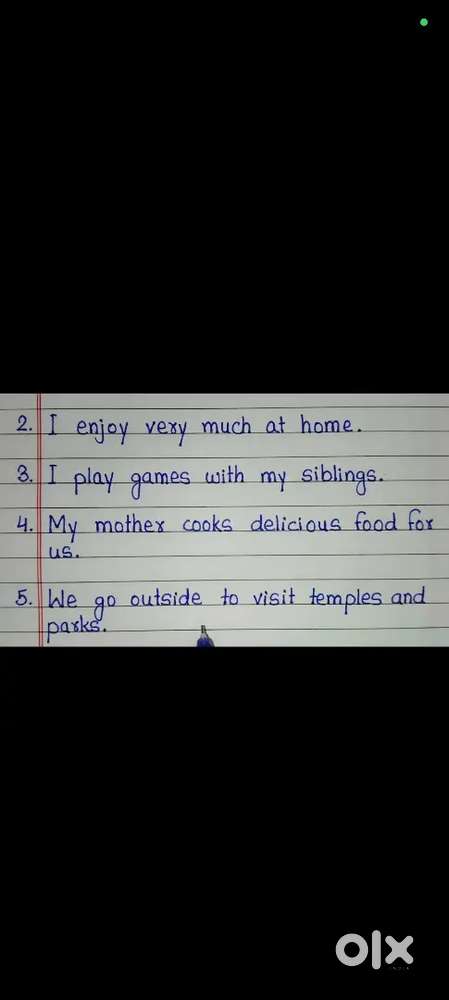 2. I enjoy very much at home.
3. I play games with my siblings.
4. My mother cooks delicious food for
us.
5. We go outside to visit temples and
parks.
olx
INDIA